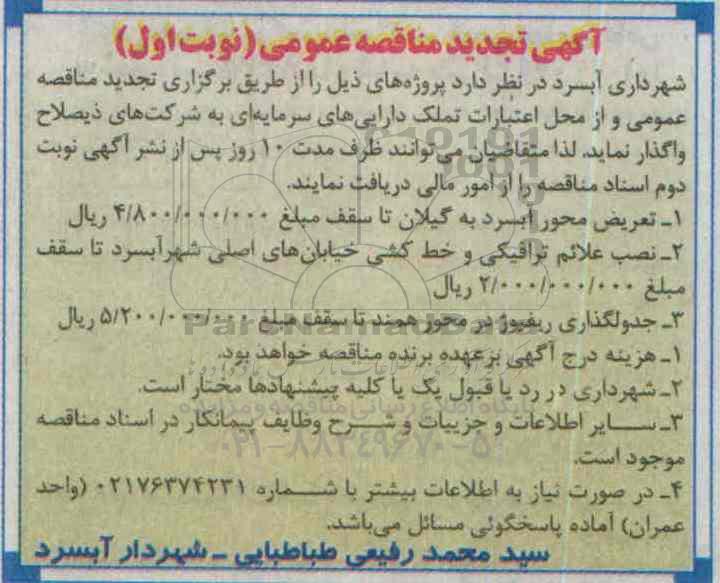 آگهی تجدید مناقصه عمومی (نوبت اول)
شهرداری آبسرد در نظر دارد پروژه‌های ذیل را از طریق برگزاری تجدید مناقصه
عمومی و از محل اعتبارات تملک دارایی‌های سرمایه‌ای به شرکت‌های ذیصلاح
واگذار نماید. لذا متقاضیان می‌توانند ظرف مدت ۱۰ روز پس از نشر آگهی نوبت
دوم اسناد مناقصه را از امور مالی دریافت نمایند.
۱ـ تعریض محور آبسرد به گیلان تا سقف مبلغ ۴/۸۰۰/۰۰۰/۰۰۰ ریال
۲ـ نصب علائم ترافیکی و خط کشی خیابان‌های اصلی شهرآبسرد تا سقف
مبلغ ۲/۰۰۰/۰۰۰/۰۰۰ ریال
۳ـ جدولگذاری ریفیوژ در محور همند تا سقف مبلغ ۵/۲۰۰/۰۰۰/۰۰۰ ریال
۱ـ هزینه درج آگهی برعهده برنده مناقصه خواهد بود.
۲ـ شهرداری در رد یا قبول یک یا کلیه پیشنهادها مختار است.
۳ـ سایر اطلاعات و جزییات و شرح وظایف پیمانکار در اسناد مناقصه
موجود است.
۴ـ در صورت نیاز به اطلاعات بیشتر با شماره ۰۲۱۷۶۳۷۴۲۳۱ (واحد
عمران) آماده پاسخگوئی مسائل می‌باشد.
سید محمد رفیعی طباطبایی ـ شهردار آبسرد
ParsNamadData
۰۲۱-۸۸۳۴۹۶۷۰-۵